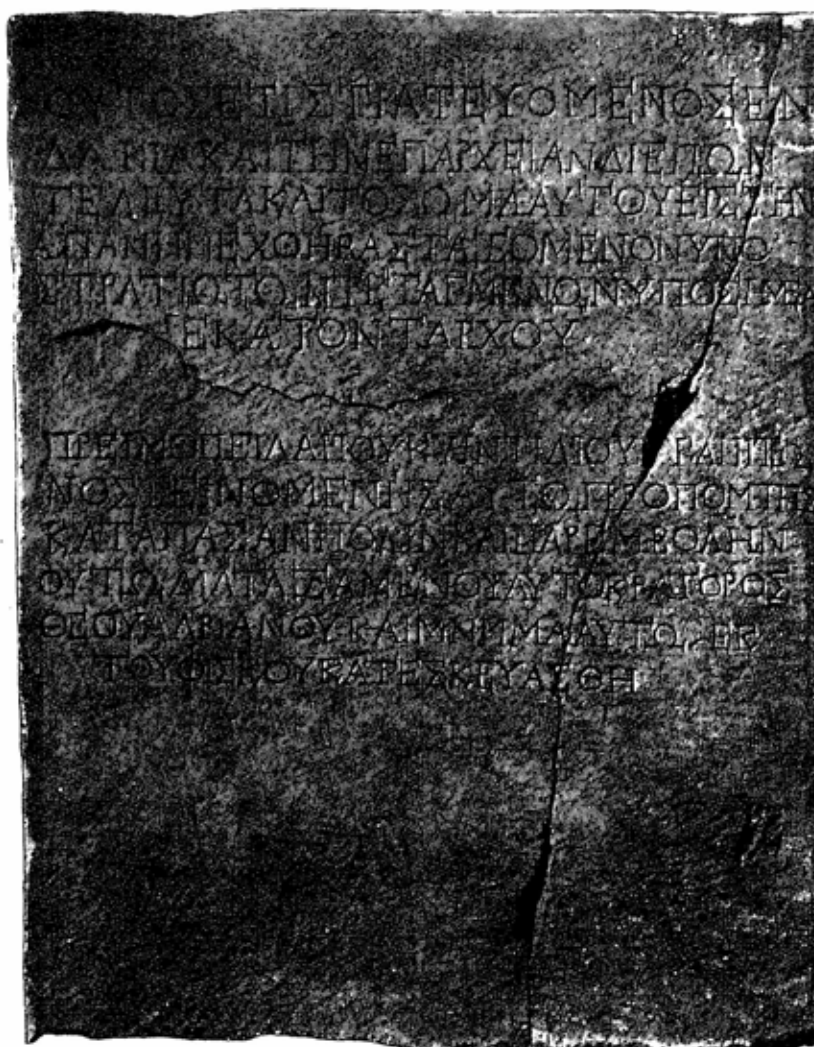 ΟΥΤΟΣ ΕΤΙ ΣΤΡΑΤΕΥΟΜΕΝΟΣ ΕΝ
ΔΑΚΙΑ ΚΑΙ ΤΗΝ ΕΠΑΡΧΕΙΑΝ ΔΙΕΠΩΝ
ΤΕΛΕΥΤΑ ΚΑΙ ΤΟ ΣΩΜΑ ΑΥΤΟΥ ΕΙΣ ΤΗΝ
ΑΣΙΑΝ ΗΝΕΧΘΗ ΒΑΣΤΑΖΟΜΕΝΟΝ ΥΠΟ
ΣΤΡΑΤΙΩΤΩΝ ΤΕΤΑΓΜΕΝΩΝ ΥΠΟ ΣΗΜΕΑ
ΕΚΑΤΟΝΤΑΡΧΟΥ
ΠΡΕΙΜΟΠΕΙΛΑΡΙΟΥ ΚΗΝΤΙΛΙΟΥ ΚΑΠΙΤΩ
ΝΟΣ ΓΕΙΝΟΜΕΝΗΣ ΑΥΤΩ ΠΡΟΠΟΜΠΗΣ
ΚΑΤΑ ΠΑΣΑΝ ΠΟΛΙΝ ΚΑΙ ΠΑΡΕΜΒΟΛΗΝ
ΟΥΤΩ ΔΙΑΤΑΞΑΜΕΝΟΥ ΑΥΤΟΚΡΑΤΟΡΟΣ
ΘΕΟΥ ΑΔΡΙΑΝΟΥ ΚΑΙ ΜΝΗΜΑ ΑΥΤΩ ΕΚ
ΤΟΥ ΦΙΣΚΟΥ ΚΑΤΕΣΚΕΥΑΣΘΗ